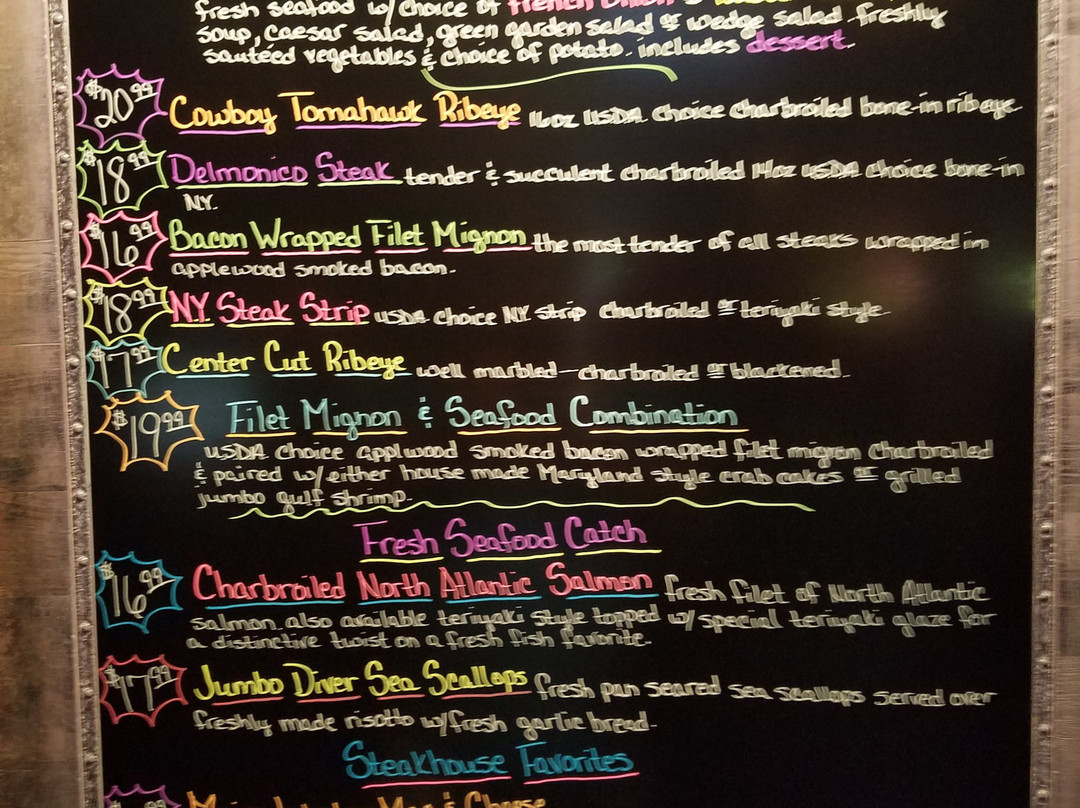 fresh seafood w/choice of French Onion
soup, caesar salad, green garden salad or wedge salad freshly
sautéed vegetables & choice of potato. includes dessert.
$20.99 Cowboy Tomahawk Ribeye 16oz USDA choice charbroiled bone-in ribeye.
$18.99 Delmonico Steak tender & succulent charbroiled 14oz USDA choice bone-in
NY.
$16.99 Bacon Wrapped Filet Mignon the most tender of all steaks wrapped in
applewood smoked bacon.
$18.99 NY Steak Strip USDA choice NY strip charbroiled or teriyaki style.
$17.99 Center Cut Ribeye well marbled-charbroiled or blackened.
$19.99 Filet Mignon & Seafood Combination
USDA choice applwood smoked bacon wrapped filet migron charbroiled
& paired w/either house made Maryland style crab cakes or grilled
jumbo gulf shrimp.
Fresh Seafood Catch
$16.99 Charbroiled North Atlantic Salmon fresh filet of North Atlantic
salmon. also available teriyaki style topped w/special teriyaki glaze for
a distinctive twist on a fresh fish favorite.
$17.99 Jumbo Diver Sea Scallops fresh pan seared sea scallops served over
freshly made risotto w/fresh garlic bread.
Steakhouse Favorites
Mac & Cheese